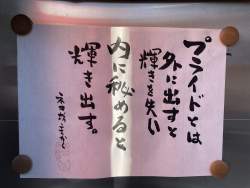 プライドとは
外に出すと
輝きを失い
内に秘めると
輝き出す。